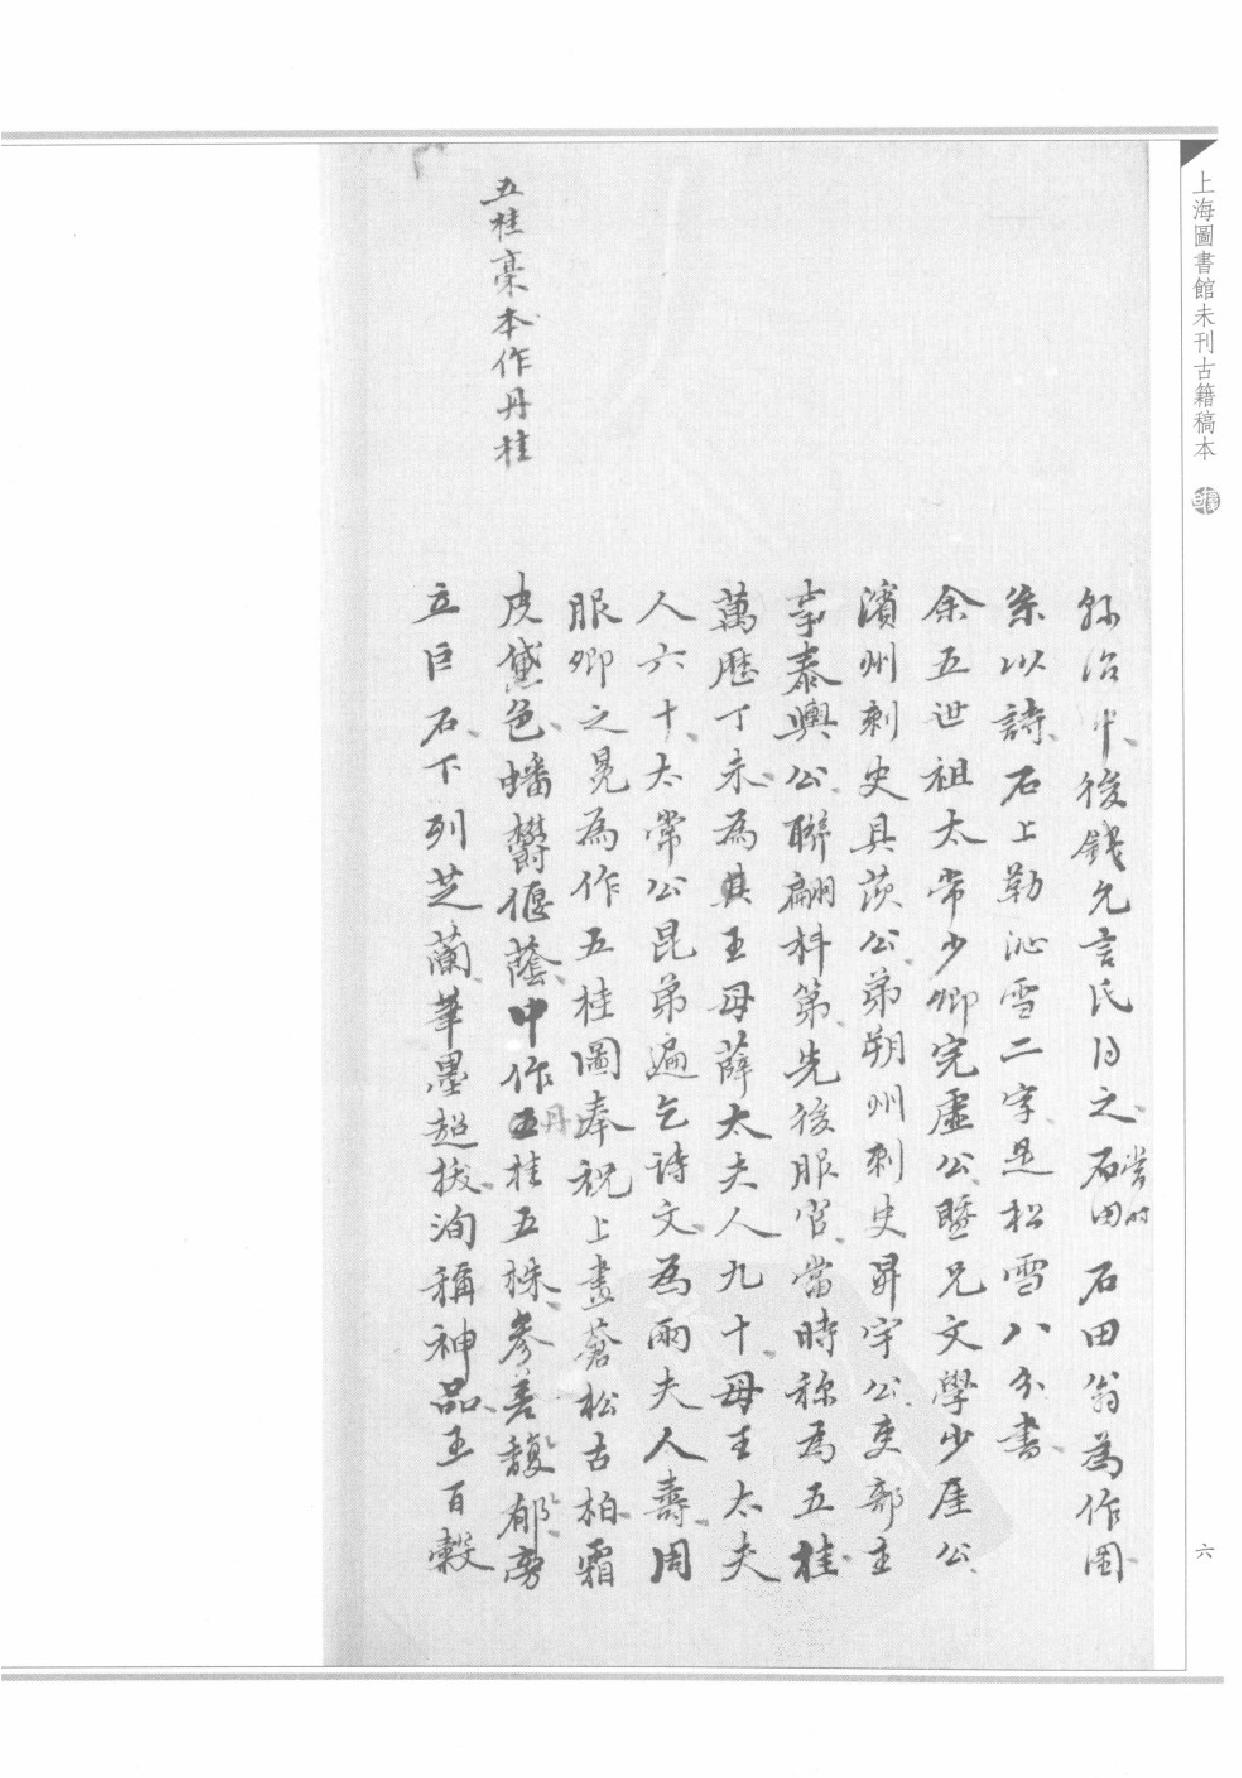 上海圖書館未刊古籍稿本
六
縣治中後錢允言氏得之石田石田翁為作圖
當時
系以詩石上勒沁雪二字是松雪八分書
余五世祖太常少卿完虛公暨兄文學少厓公
濱州刺史具茨公弟朔州刺史昇宇公吏部主
事泰輿公聯翩科第先後服官當時称為五桂
萬歷丁未為其王母薛太夫人九十母王太夫
人六十太常公昆弟遍乞詩文為兩夫人壽周
服卿之冕為作五桂圖奉祝上畫蒼松古柏霜
皮黛色蟠欝偃蔭中作五桂五株參差馥郁旁
丹
立巨石下列芝蘭筆墨超拔洵稱神品王百穀
五桂稾本作丹桂